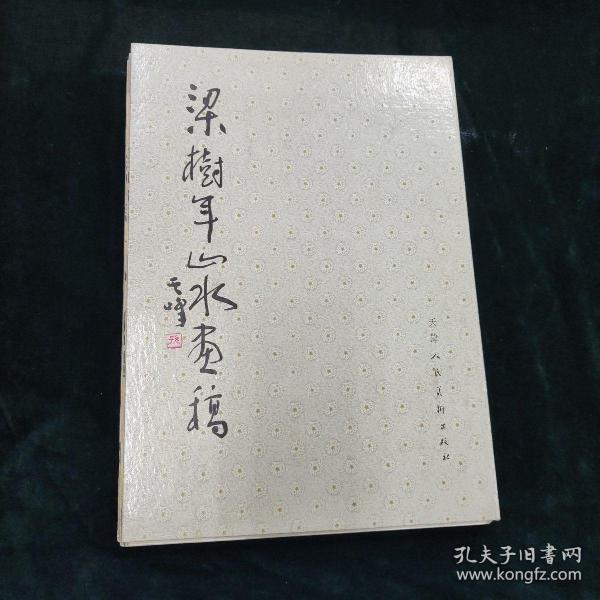 梁樹年山水画稿
其峰
孫
天津人民美術出版社
孔夫子旧書网
www.kongfz.com